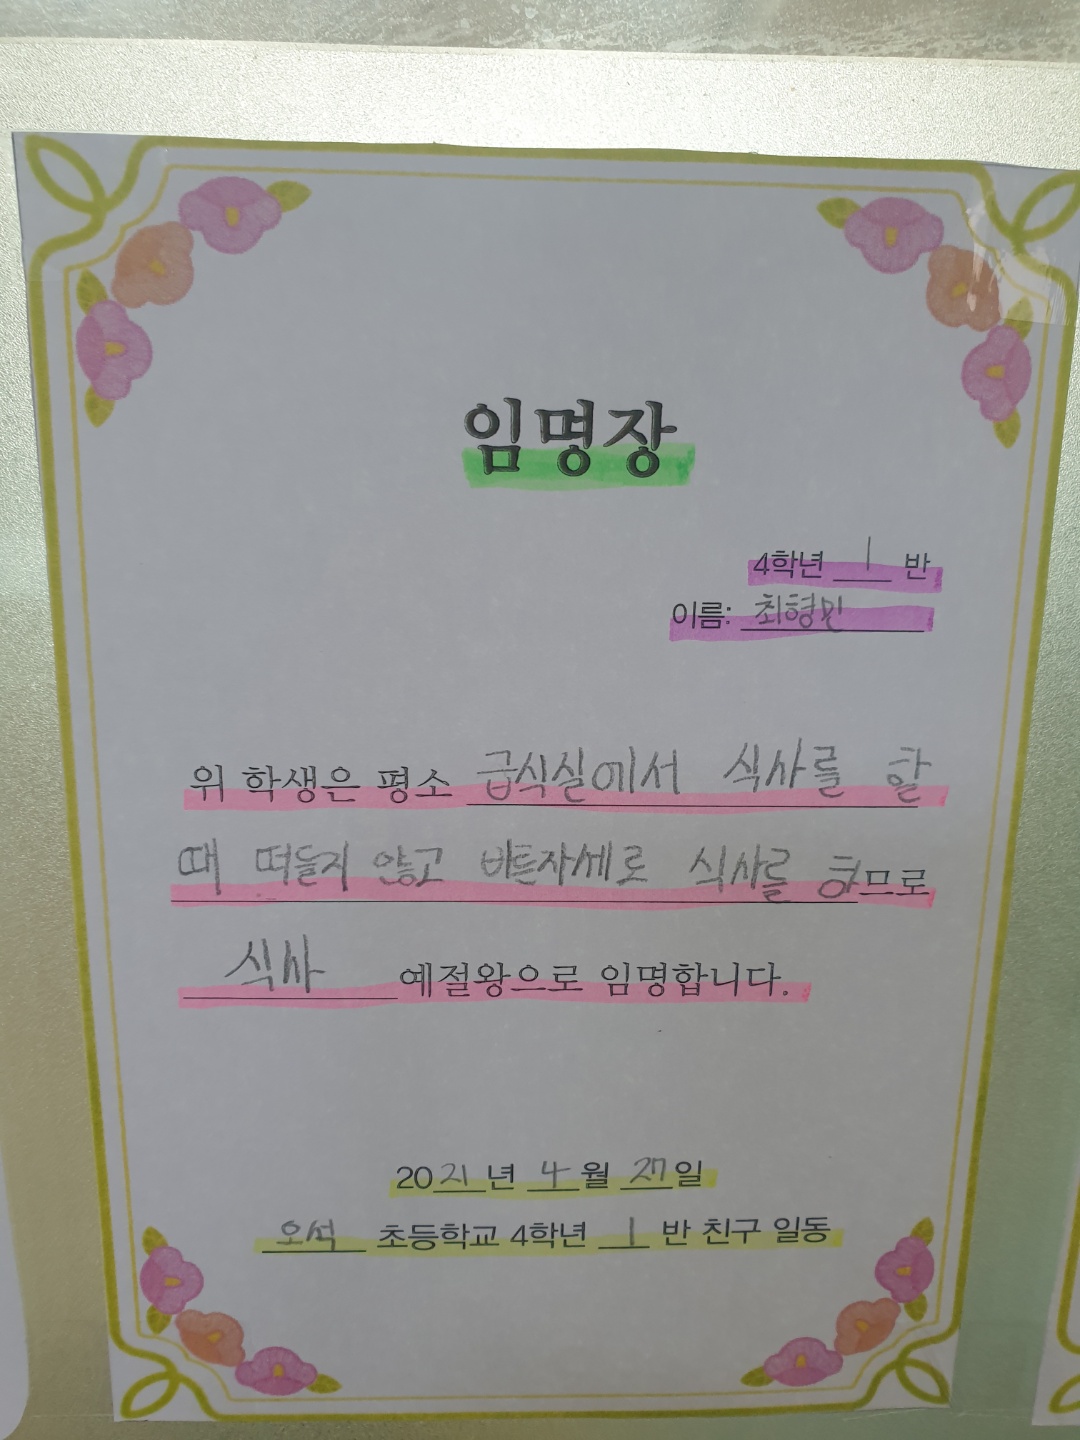 임명장
4학년 1 반
이름: 최형민
위 학생은 평소 급식실에서 식사를 할
때 떠들지 않고 바른자세로 식사를 하므로
식사 예절왕으로 임명합니다.
2021년 4월 27일
오석 초등학교 4학년 1 반 친구 일동